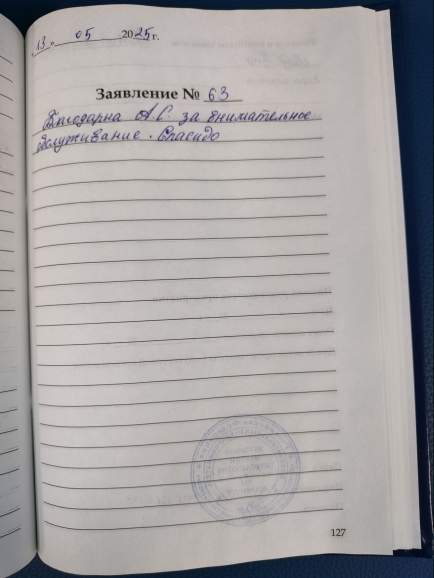 13 " 05 2025 г.
Заявление № 63
Благодарна А.С. за внимательное
обслуживание. Спасибо
127